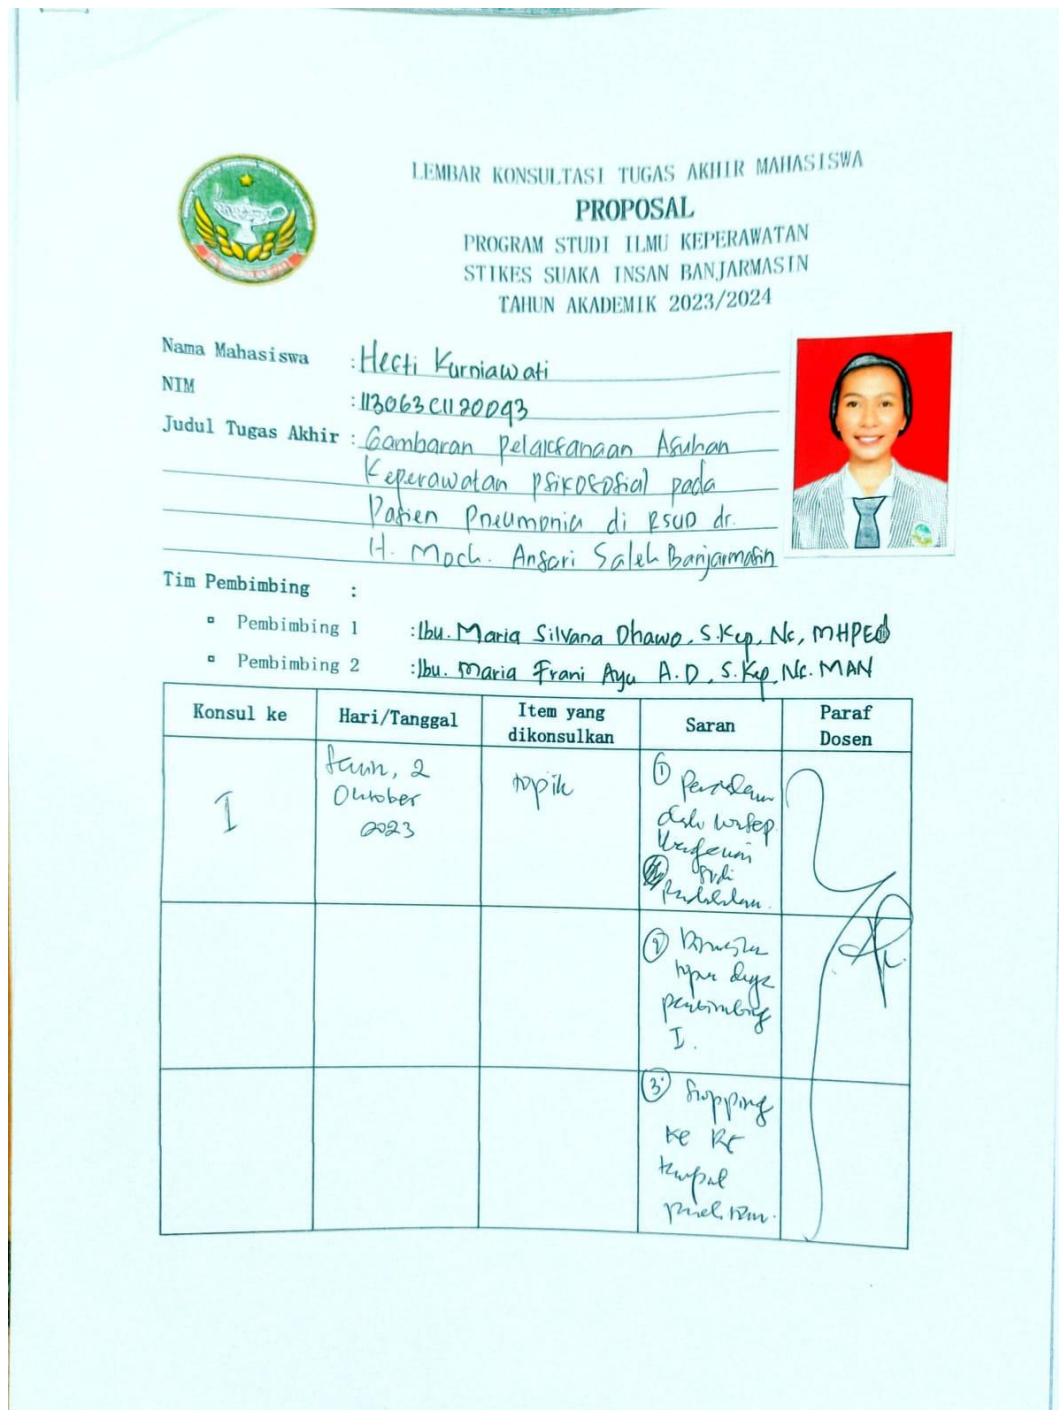 LEMBAR KONSULTASI TUGAS AKHIR MAHASISWA
PROPOSAL
PROGRAM STUDI ILMU KEPERAWATAN
STIKES SUAKA INSAN BANJARMASIN
TAHUN AKADEMIK 2023/2024
Nama Mahasiswa : Hecti Kurniawati
NIM : 113063C1120093
Judul Tugas Akhir : Gambaran Pelaksanaan Asuhan
Keperawatan psikososial pada
Pasien Pneumonia di RSUD dr.
H. Moch. Ansari Saleh Banjarmasin
Tim Pembimbing :
Pembimbing 1 : Ibu. Maria Silvana Dhawo, S.Kep, Ns, MHPEd
Pembimbing 2 : Ibu. Maria Frani Ayu A.D, S.Kep, Ns. MAN
Konsul ke Hari/Tanggal Item yang dikonsulkan Saran Paraf Dosen
I
Senin, 2
Oktober
2023
topik
①
②
topik
pembimbing
I.
③
ke RS
tempat